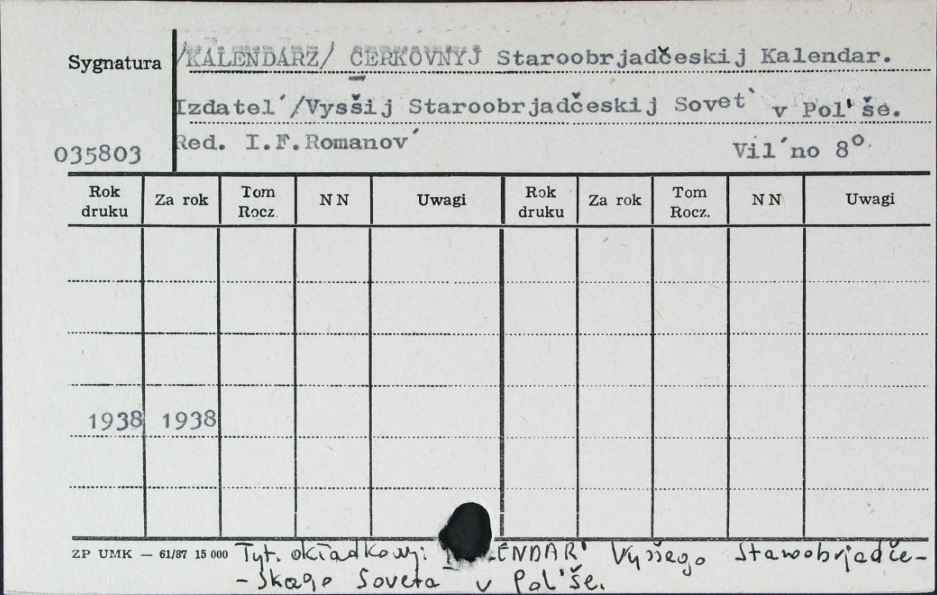 Sygnatura /KALENDARZ/ CERKOVNYJ Staroobrjadčeskij Kalendar.
Izdatel´/Vysšij Staroobrjadčeskij Sovet` v Pol'še.
Red. I.F.Romanov´ Vil´no 8°
035803
Rok druku Za rok Tom Rocz. NN Uwagi Rok druku Za rok Tom Rocz. NN Uwagi
1938 1938
ZP UMK — 61/87 15 000 Tyt. okładkowy: ENDAR' Vysšego Staroobrjadče-
-skago Soveta v Pol'še.